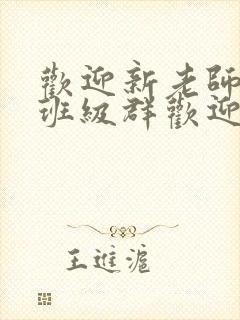 歡迎新老師
班級群歡迎
王進滬